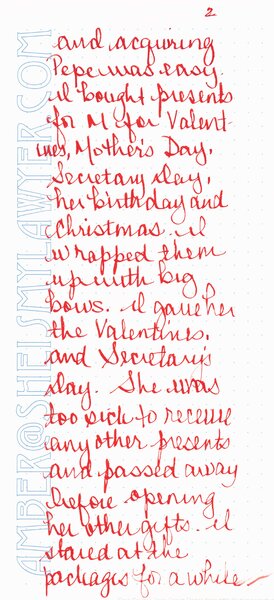 2
and acquiring
Pepe was easy.
I bought presents
for M for Valent-
ines, Mother's Day,
Secretary Day,
her birthday and
Christmas. I
wrapped them
up with big
bows. I gave her
the Valentines,
and Secretary's
Day. She was
too sick to receive
any other presents
and passed away
before opening
her other gifts. I
stared at the
packages for a while—
AMBER@SHEISMYLAWYER.COM